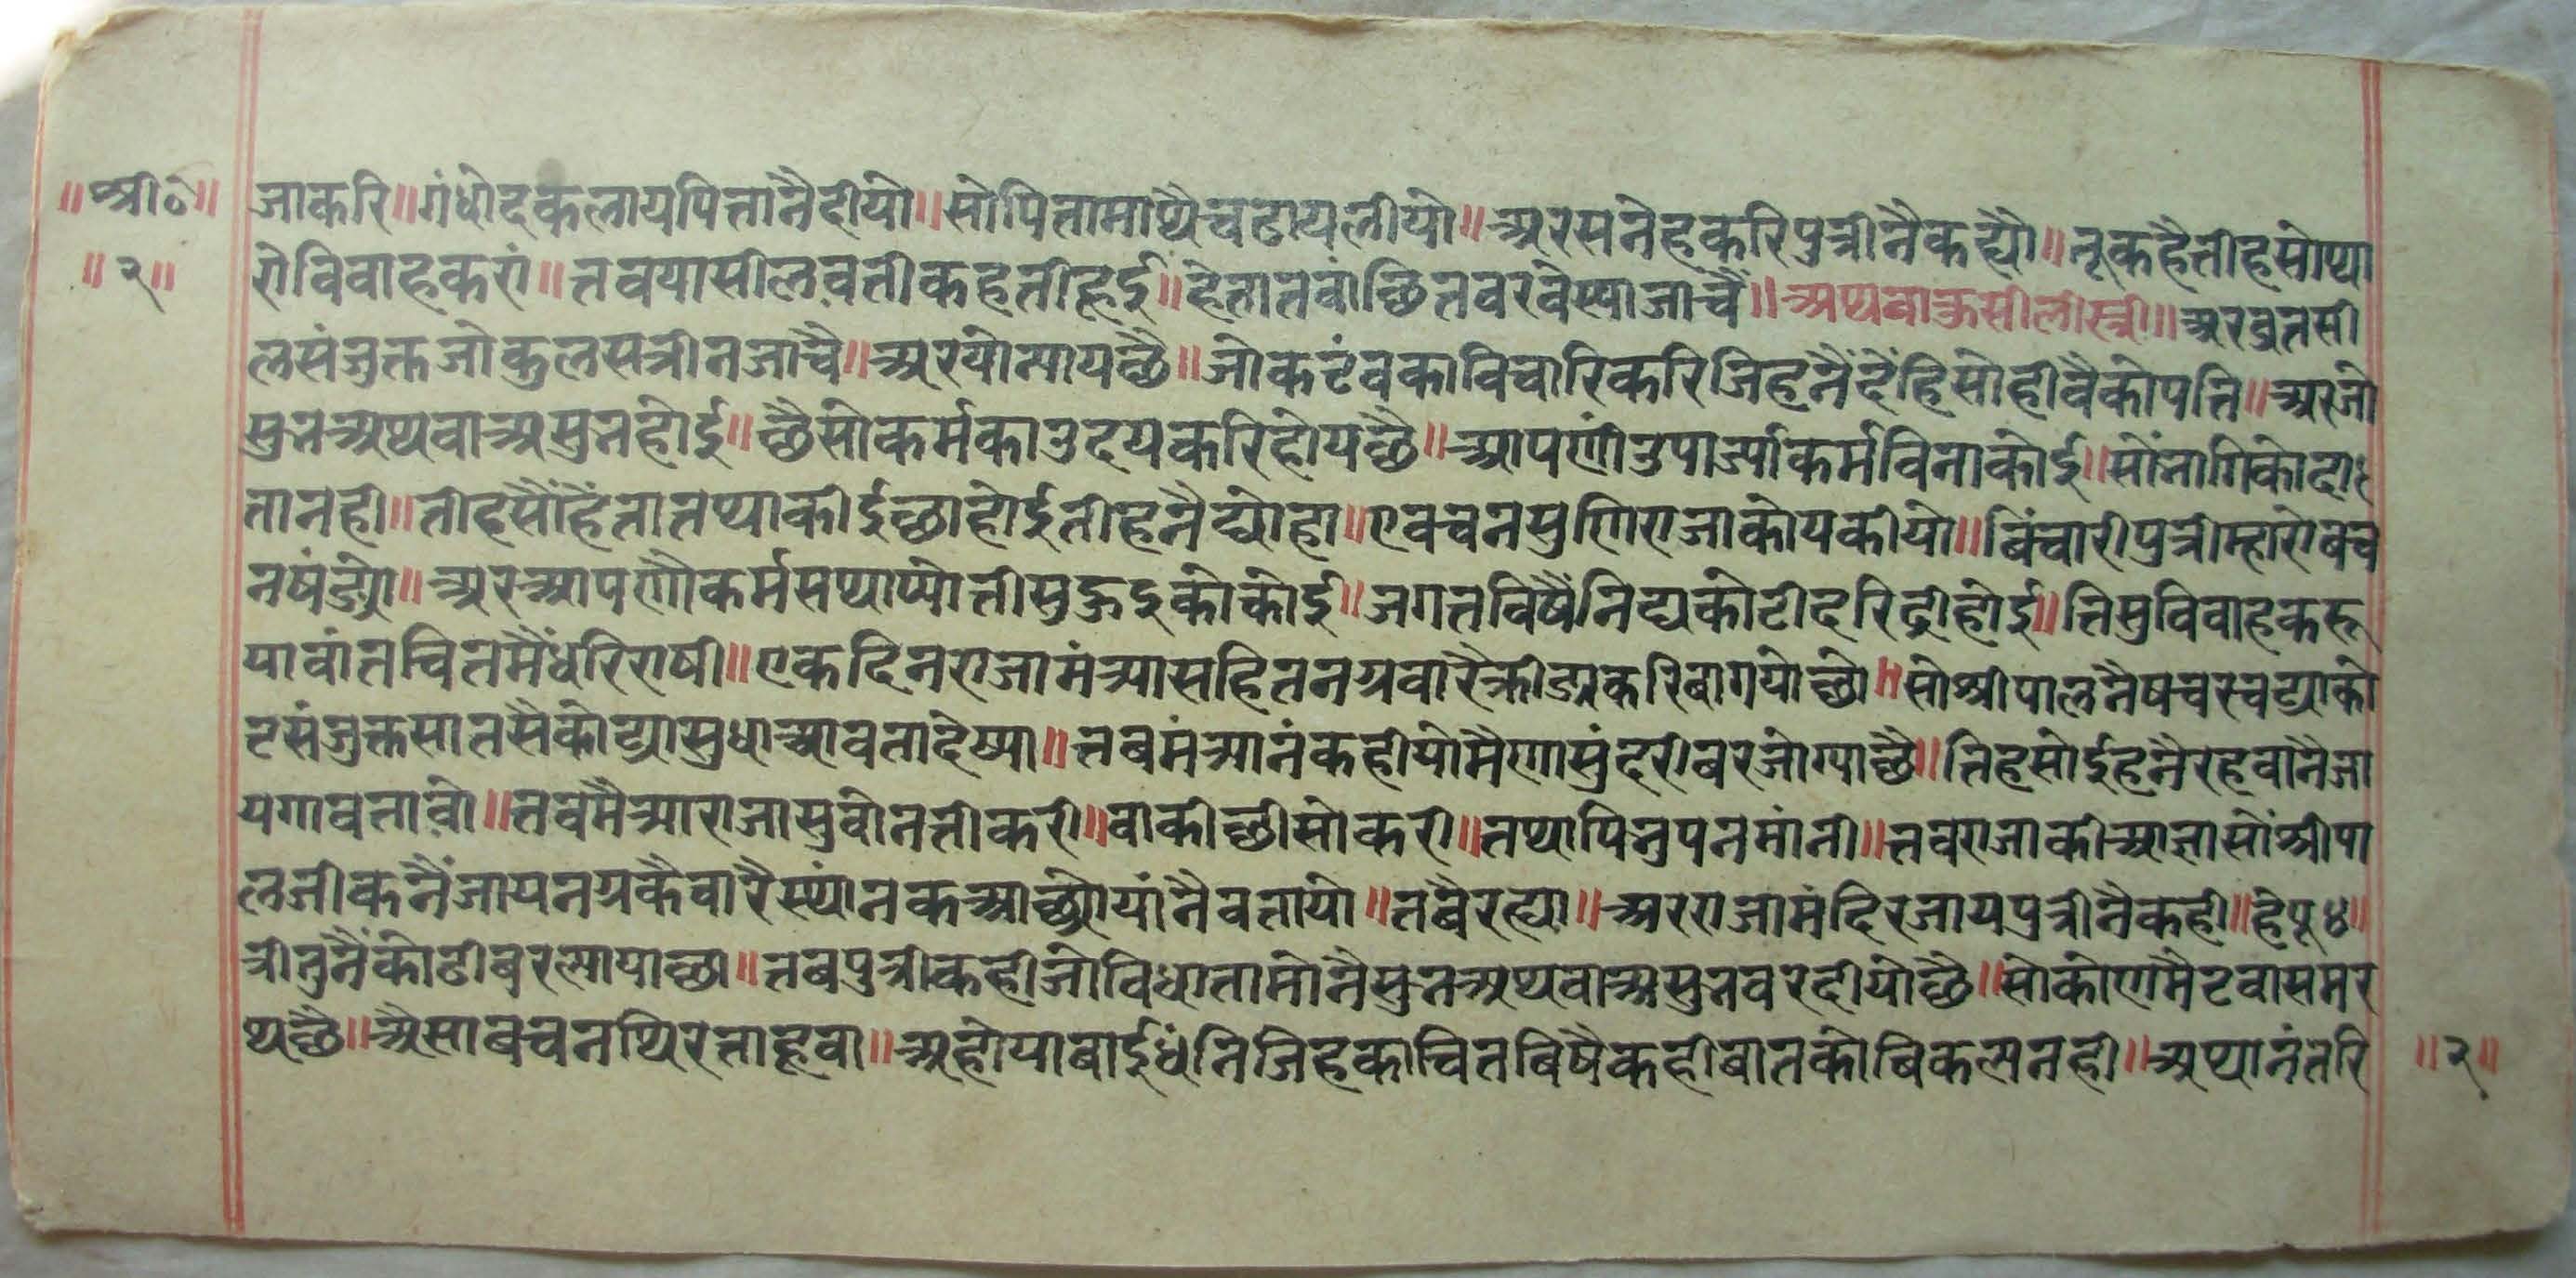 ॥श्री०॥ जाकरि॥गंधोदकलायपितानैदीयो॥सोपितामाथैचढायलीयो॥अरसनेहकरिपुत्रीनैकह्यौ॥तूकहैतीहसोथा
॥२॥ रोविवाहकरां॥तवयासीलवतीकहतीहूई॥हेतातवांछितवरवेस्याजाचैं॥अथवाकुसीलीस्त्री॥अरव्रतसी
लसंजुक्तजोकुलसत्रीनजाचै॥अरयोन्यायछै॥जोकटंवकाविचारिकरिजिहनैंदेंहिसोहीवैकोपति॥अरजो
सुनअथवाअसुनहोई॥छैसोकर्मकाउदयकरिहोयछै॥आपणांउपार्ज्याकर्मविनाकोई॥सोंनागिकोदाः
तानही॥तीहसौंहेंतातथाकीईछाहोईतीहनैद्योहा॥एवचनसुणिराजाकोयकीयो॥बिंचारीपुत्रीम्हारोबच
नषंड्यो॥अरआपणौकर्मसथाप्योतीसुकुइकोकोई॥जगतविषैनिद्यकोटीदरिद्रीहोई॥तिसुविवाहकरू
यावांतचितमैंधरिराषी॥एकदिनराजामंत्र्यासहितनग्रवारैक्रीडाकरिबागयोछो॥सोश्रीपालनैषचरचद्याको
टसंजुक्तसातसैकोद्यासुधाआवतादेष्या॥तबमंत्रानंकहीयोमैणासुंदरीबरजोग्याछै॥तिहसोईहनैरहवानैजा
यगावतावो॥तवमैत्राराजासुवीनतीकरी॥वाकीछीसोकरी॥तथापिनुपनमांनी॥तवराजाकीआज्ञासोंश्रीपा
लजीकनैंजायनग्रकैवारैस्थांनकआछोयांनैवतायो॥तबैरह्या॥अरराजामंदिरजायपुत्रीनैकही॥हेपू४॥
त्रीतुनैंकोढीबरल्यायाछा॥तबपुत्रीकहीजोविधातामोनैसुनअथवाअसुनवरदीयोछै॥सोकोणमैटवासमर
थछै॥अैसाबचनथिरताहूवा॥अहोयाबाईधंनिजिहकाचितबिषैकहीबातकोबिकल्पनही॥अथानंतरि ॥२॥